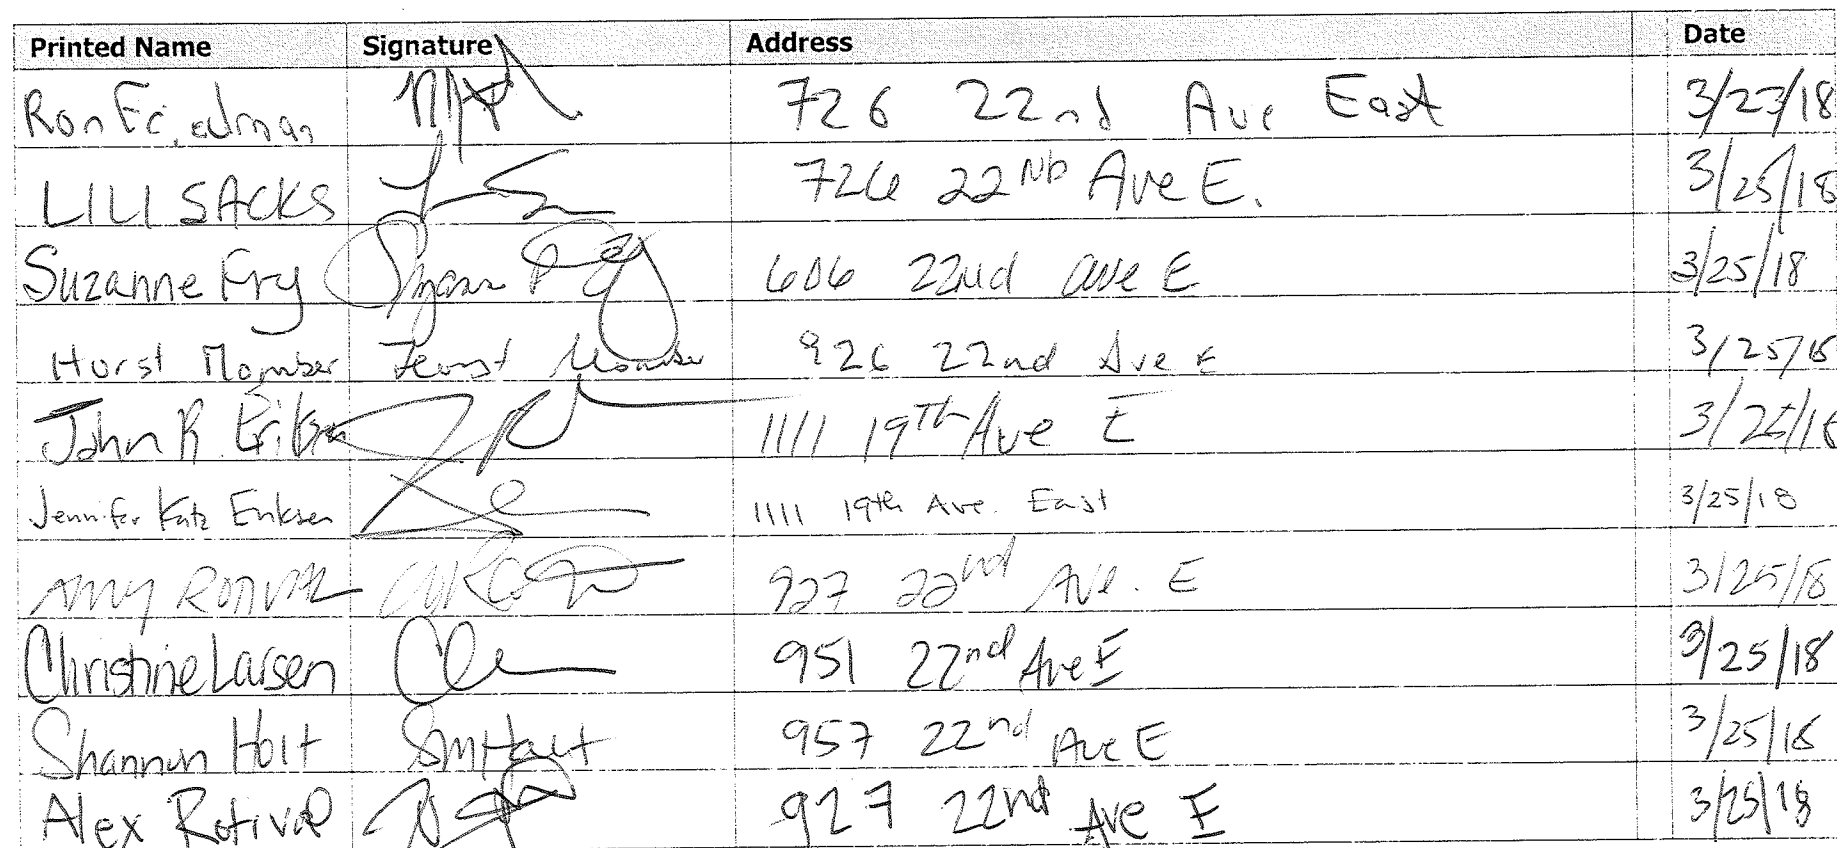 Printed Name Signature Address Date
Ron Friedman 726 22nd Ave East 3/23/18
LILI SACKS 726 22ND Ave E. 3/25/18
Suzanne Fry 606 22nd ave E 3/25/18
Horst Momber Horst Momber 926 22nd Ave E 3/25/18
John R. 1111 19TH Ave E 3/25/18
Jennifer Katz Eriksen 1111 19th Ave. East 3/25/18
Amy Rotival 927 22nd Ave. E 3/25/18
Christine Larsen 951 22nd Ave E 3/25/18
Shannon Holt SMHolt 957 22nd Ave E 3/25/18
Alex Rotival 927 22nd Ave E 3/25/18